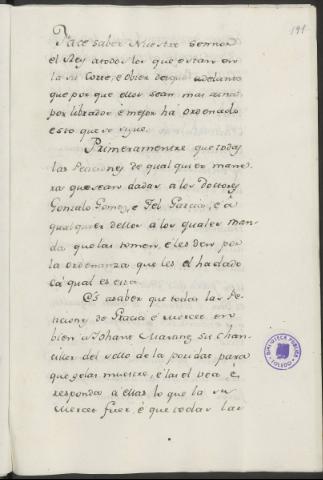 191
Face saber Nuestro Sennor
el Rey a todos los que estan en
la su Corte, è obier de qui adelante
que por que ellos sean mas
por librados è mejor há ordenado
esto que se sigue.
Primeramente que todas
las Peticiones de qualquier mane-
ra que sean dadas a los dottores
Gonzalo Gomez, e Fel Garcia, e á
qualquier dellos a los quales man-
da que las tomen, è les den por
la ordenanza que les el ha dado
la qual es esta.
Es asaber que todas las Pe-
ticiones de Gracia è Merced en-
bien a Johane Martinz su Chan-
ciller del sello de la poridat para
que gelas muestre, è las el vea è
responda a ellas lo que la su
Merced fuer, è que todas las
BIBLIOTECA PUBLICA
TOLEDO